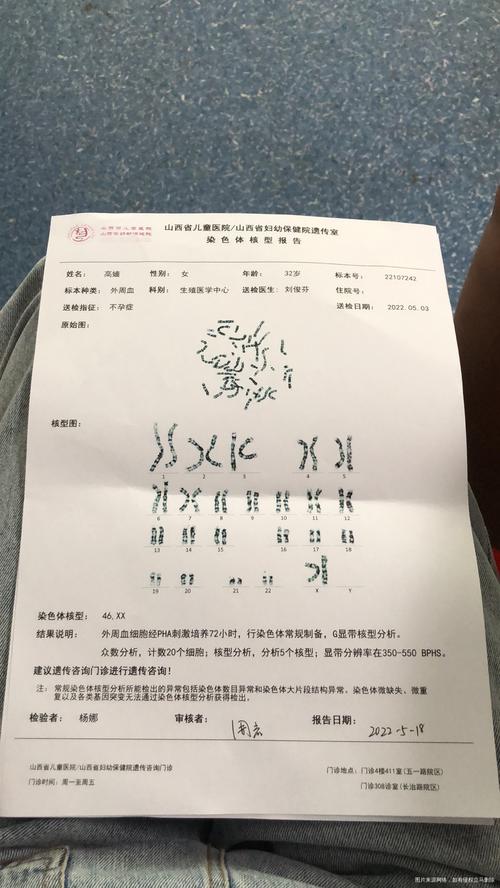 山西省儿童医院
山西省妇幼保健院
山西省儿童医院/山西省妇幼保健院遗传室
染色体核型报告
姓名： 高嫱 性别： 女 年龄： 32岁 标本号： 22107242
标本种类： 外周血 科别： 生殖医学中心 送检医生： 刘俊芬 住院号：
送检指征： 不孕症 送检日期： 2022.05.03
原始图：
核型图：
1 2 3 4 5
6 7 8 9 10 11 12
13 14 15 16 17 18
19 20 21 22 X Y
染色体核型： 46,XX
结果说明： 外周血细胞经PHA刺激培养72小时，行染色体常规制备，G显带核型分析。
众数分析，计数20个细胞；核型分析，分析5个核型；显带分辨率在350-550 BPHS。
建议遗传咨询门诊进行遗传咨询！
注： 常规染色体核型分析所能检出的异常包括染色体数目异常和染色体大片段结构异常。染色体微缺失、微重
复以及各类基因突变无法通过染色体核型分析获得检出。
检验者： 杨娜 审核者： 报告日期： 2022-5-18
山西省儿童医院/山西省妇幼保健院遗传咨询门诊
门诊时间：周一至周五
门诊地点：门诊4楼411室(五一路院区)
门诊308诊室(长治路院区)
图片来源网络，如有侵权立马删除